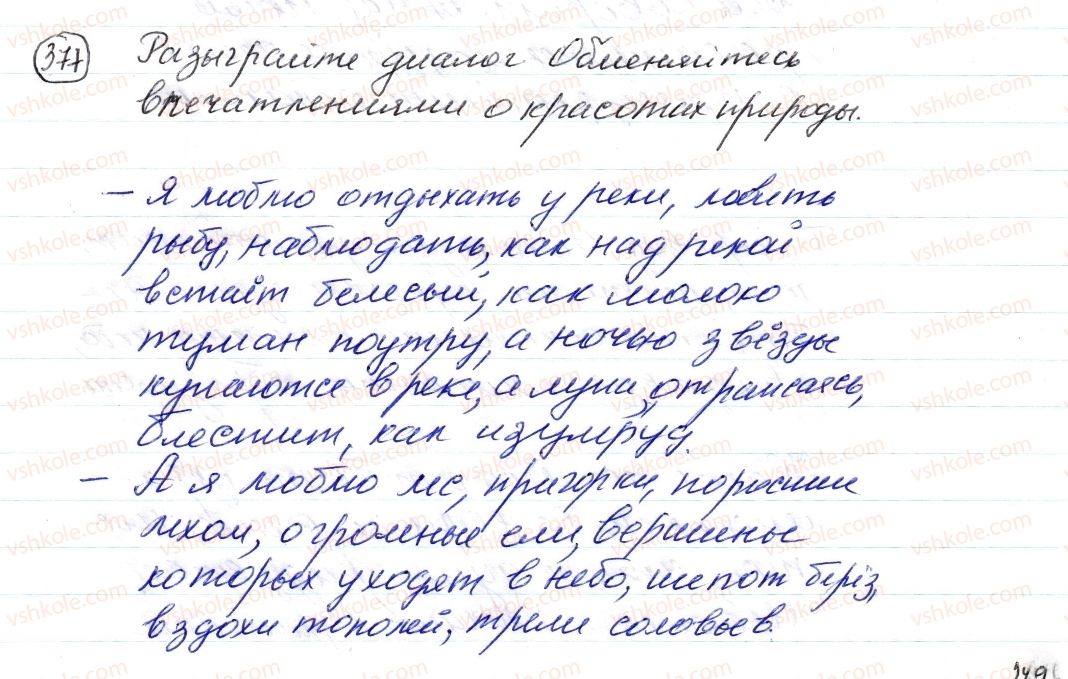 377 Разыграйте диалог Обменяйтесь
впечатлениями о красотах природы.
– Я люблю отдыхать у реки, ловить
рыбу, наблюдать, как над рекой
встаёт белесый, как молоко
туман поутру, а ночью звёзды
купаются в реке, а луна, отражаясь,
блестит, как изумруд.
– А я люблю лес, пригорки, поросшие
мхом, огромные ели, вершины
которых уходят в небо, шепот берёз,
вздохи тополей, трели соловьев.
149
vshkole.com